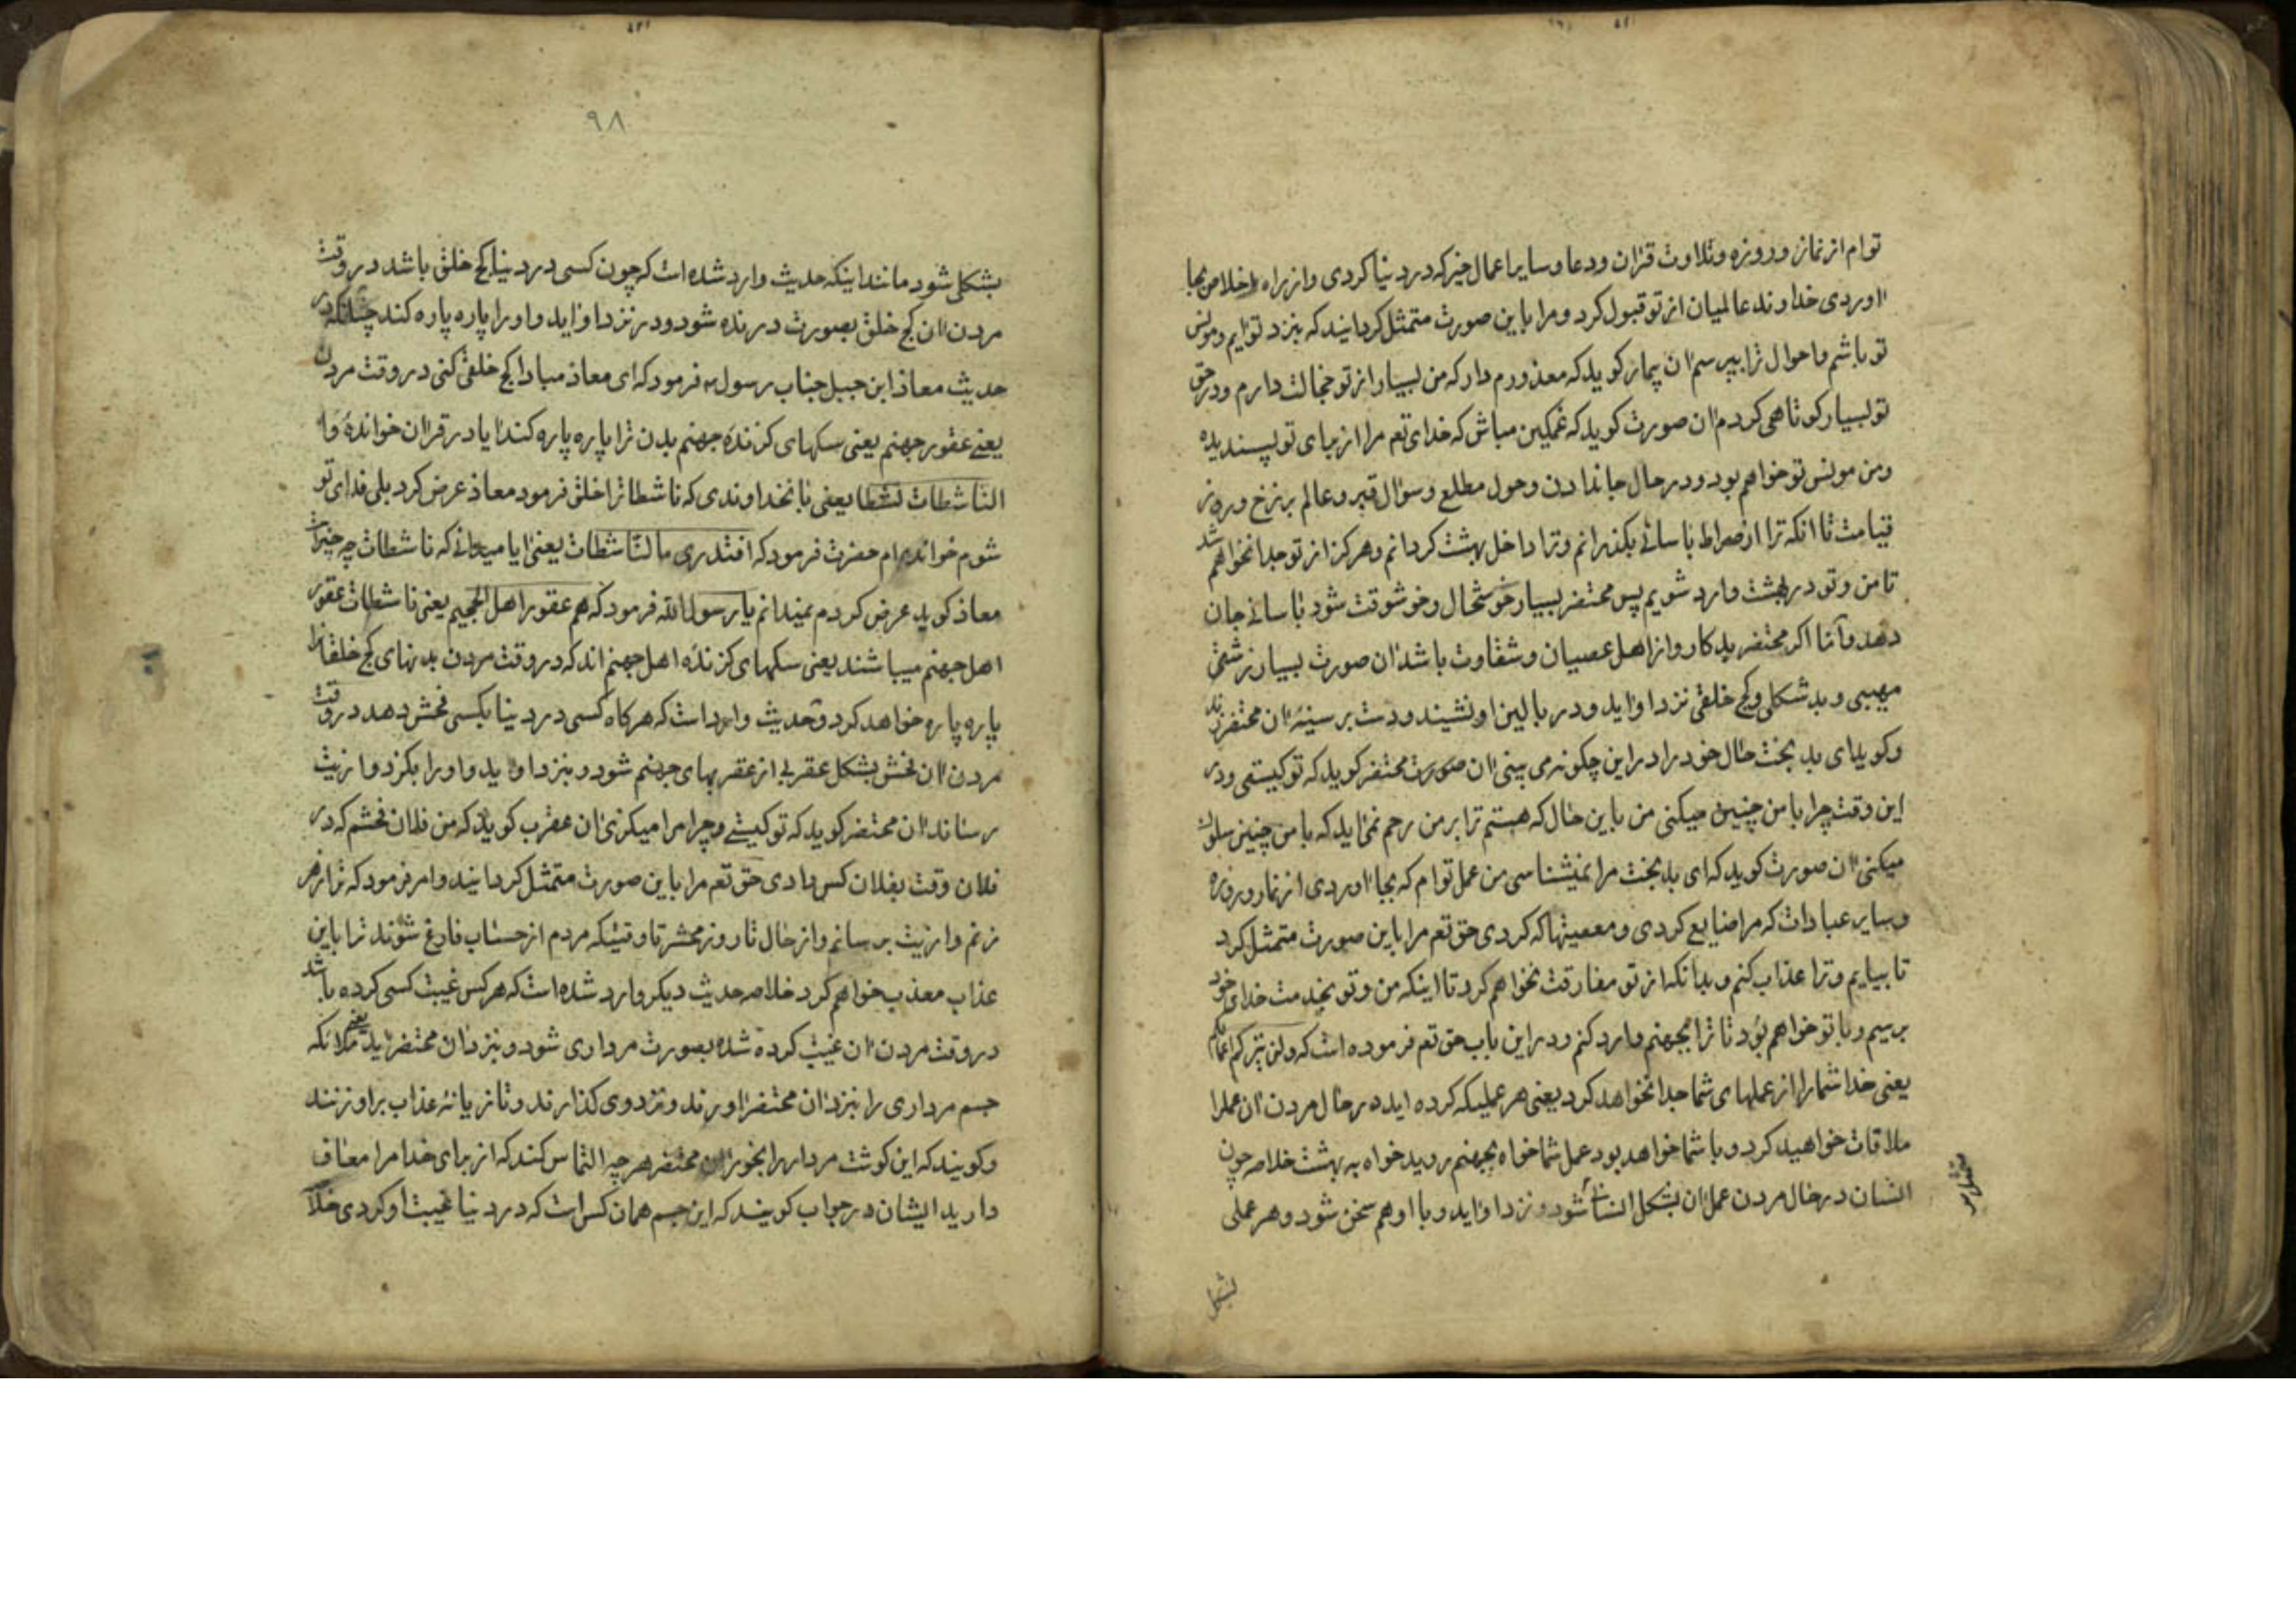 توام از نماز و روزه و تلاوت قران و دعا و سایر اعمال خیر که در دنیا کردی و از راه اخلاص بجا
اوردی خداوند عالمیان از تو قبول کرد و مرا باین صورت متمثل کردانید که بنزد تو ایم و مونس
تو باشم و احوال ترا بپرسم ان بیمار کوید که معذورم دار که من بسیار از تو خجالت دارم و در حق
تو بسیار کوتاهی کردم ان صورت کوید که غمکین مباش که خدای تعم مرا از برای تو پسندیده
و من مونس تو خواهم بود و در حال جاندادن و حول مطلع و سوال قبر و عالم برزخ و روز
قیامت تا انکه ترا از صراط باسانی بکذرانم و ترا داخل بهشت کردانم و هرکز از تو جدا نخواهم شد
تا من و تو در بهشت وارد شویم پس محتضر بسیار خوشحال و خوشوقت شود باسانی جان
دهد و اما اکر محتضر بدکار و از اهل عصیان و شقاوت باشد ان صورت بسیار زشتی
مهیبی و بد شکلی و کج خلقی نزد او اید و در بالین او نشیند و دست بر سینه ان محتضر زند
و کوید ای بد بخت حال خود را در این چکونه می بینی ان صورت محتضر کوید که تو کیستی و در
این وقت چرا با من چنین میکنی من باین حال که هستم ترا بر من رحم نمی اید که با من چنین سلوک
میکنی ان صورت کوید که ای بد بخت مرا نمیشناسی من عمل توام که بجا اوردی از نماز و روزه
و سایر عبادات که مرا ضایع کردی و معصیتها که کردی حق تعم مرا باین صورت متمثل کرد
تا بیایم و ترا عذاب کنم و بدانکه از تو مفارقت نخواهم کرد تا اینکه من و تو بخدمت خدای خود
برسیم و با تو خواهم بود تا ترا بجهنم وارد کنم و در این باب حق تعم فرموده است که ولن یترکم اعمالکم
یعنی خدا شما را از عملهای شما جدا نخواهد کرد یعنی هر عملیکه کرده اید در حال مردن ان عمل را
ملاقات خواهید کرد و با شما خواهد بود عمل شما خواه بجهنم روید خواه به بهشت خلاصه چون
انسان در حال مردن عمل ان بشکل انسان شود و نزد او اید و با او هم سخن شود و هر عملی
بشکل
۹۸
بشکلی شود مانند اینکه حدیث وارد شده است که چون کسی در دنیا کج خلق باشد در وقت
مردن ان کج خلق بصورت درنده شود و در نزد او اید و او را پاره پاره کند چنانکه در
حدیث معاذ ابن جبل جناب رسول ص فرمود که ای معاذ مبادا کج خلقی کنی در وقت مردن
یعنی عقور جهنم یعنی سکهای کزنده جهنم بدن ترا پاره پاره کند ایا در قران خوانده وا
لناشطات نشطا یعنی بانخداوندی که ناشطات را خلق فرمود معاذ عرض کرد بلی فدای تو
شوم خوانده ام حضرت فرمود که افتدری ما لناشطات یعنی ایا میدانی که ناشطات چه چیز است
معاذ کوید عرض کردم نمیدانم یا رسول الله فرمود که هم عقور اهل الجحیم یعنی ناشطات عقور
اهل جهنم میباشند یعنی سکهای کزنده اهل جهنم اند که در وقت مردن بدنهای کج خلقانرا
پاره پاره خواهد کرد و حدیث وارد است که هرکاه کسی در دنیا بکسی فحش دهد در وقت
مردن ان فحش بشکل عقربی از عقربهای جهنم شود و بنزد او اید و او را بکزد و ازیت
رساند ان محتضر کوید که تو کیستی و چرا مرا میکزی ان عقرب کوید که من فلان فحشم که در
فلان وقت بفلان کس دادی حق تعم مرا باین صورت متمثل کردانید و امر فرمود که ترا زهر
زنم و ازیت برسانم و از حال تا روز محشر تا وقتیکه مردم از حساب فارغ شوند ترا باین
عذاب معذب خواهم کرد خلاصه حدیث دیکر وارد شده است که هر کس غیبت کسی کرده باشد
در وقت مردن ان غیبت کرده شده بصورت مرداری شود و بنزد ان محتضر اید یعنی ملائکه
جسم مرداری را بنزد ان محتضر اورند و نزد وی کذارند و تازیانه عذاب بر او زنند
و کویند که این کوشت مردار را بخور ان محتضر هر چه التماس کند که از برای خدا مرا معاف
دارید ایشان در جواب کویند که این جسم همان کس است که در دنیا غیبت او کردی خلا